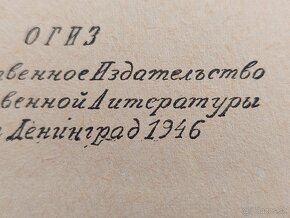 ОГИЗ
твенное Издательство
венной Литературы
Ленинград 1946